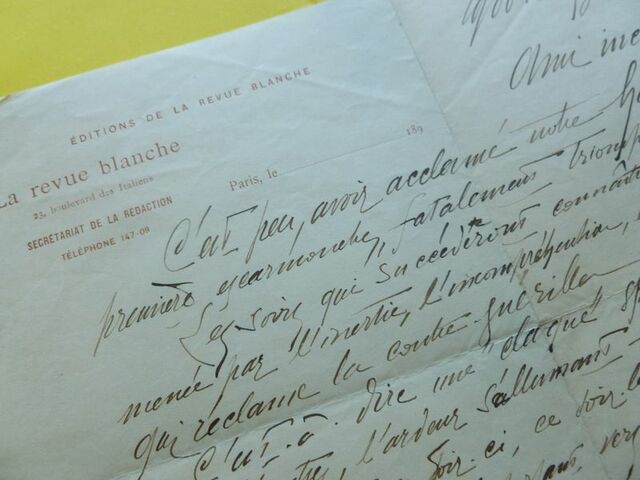 ÉDITIONS DE LA REVUE BLANCHE
La revue blanche
23, boulevard des Italiens
SECRÉTARIAT DE LA RÉDACTION
TÉLÉPHONE 147-09
Paris, le 189
Ami
C'est peu, avoir acclamé notre
première escarmouche, fatalement
Les soirs qui succéderont
menée par l'inertie, l'incompréhension,
qui réclame la contre-guérilla
C'est-à-dire une "claque"
l'ardeur s'allumant
ce soir